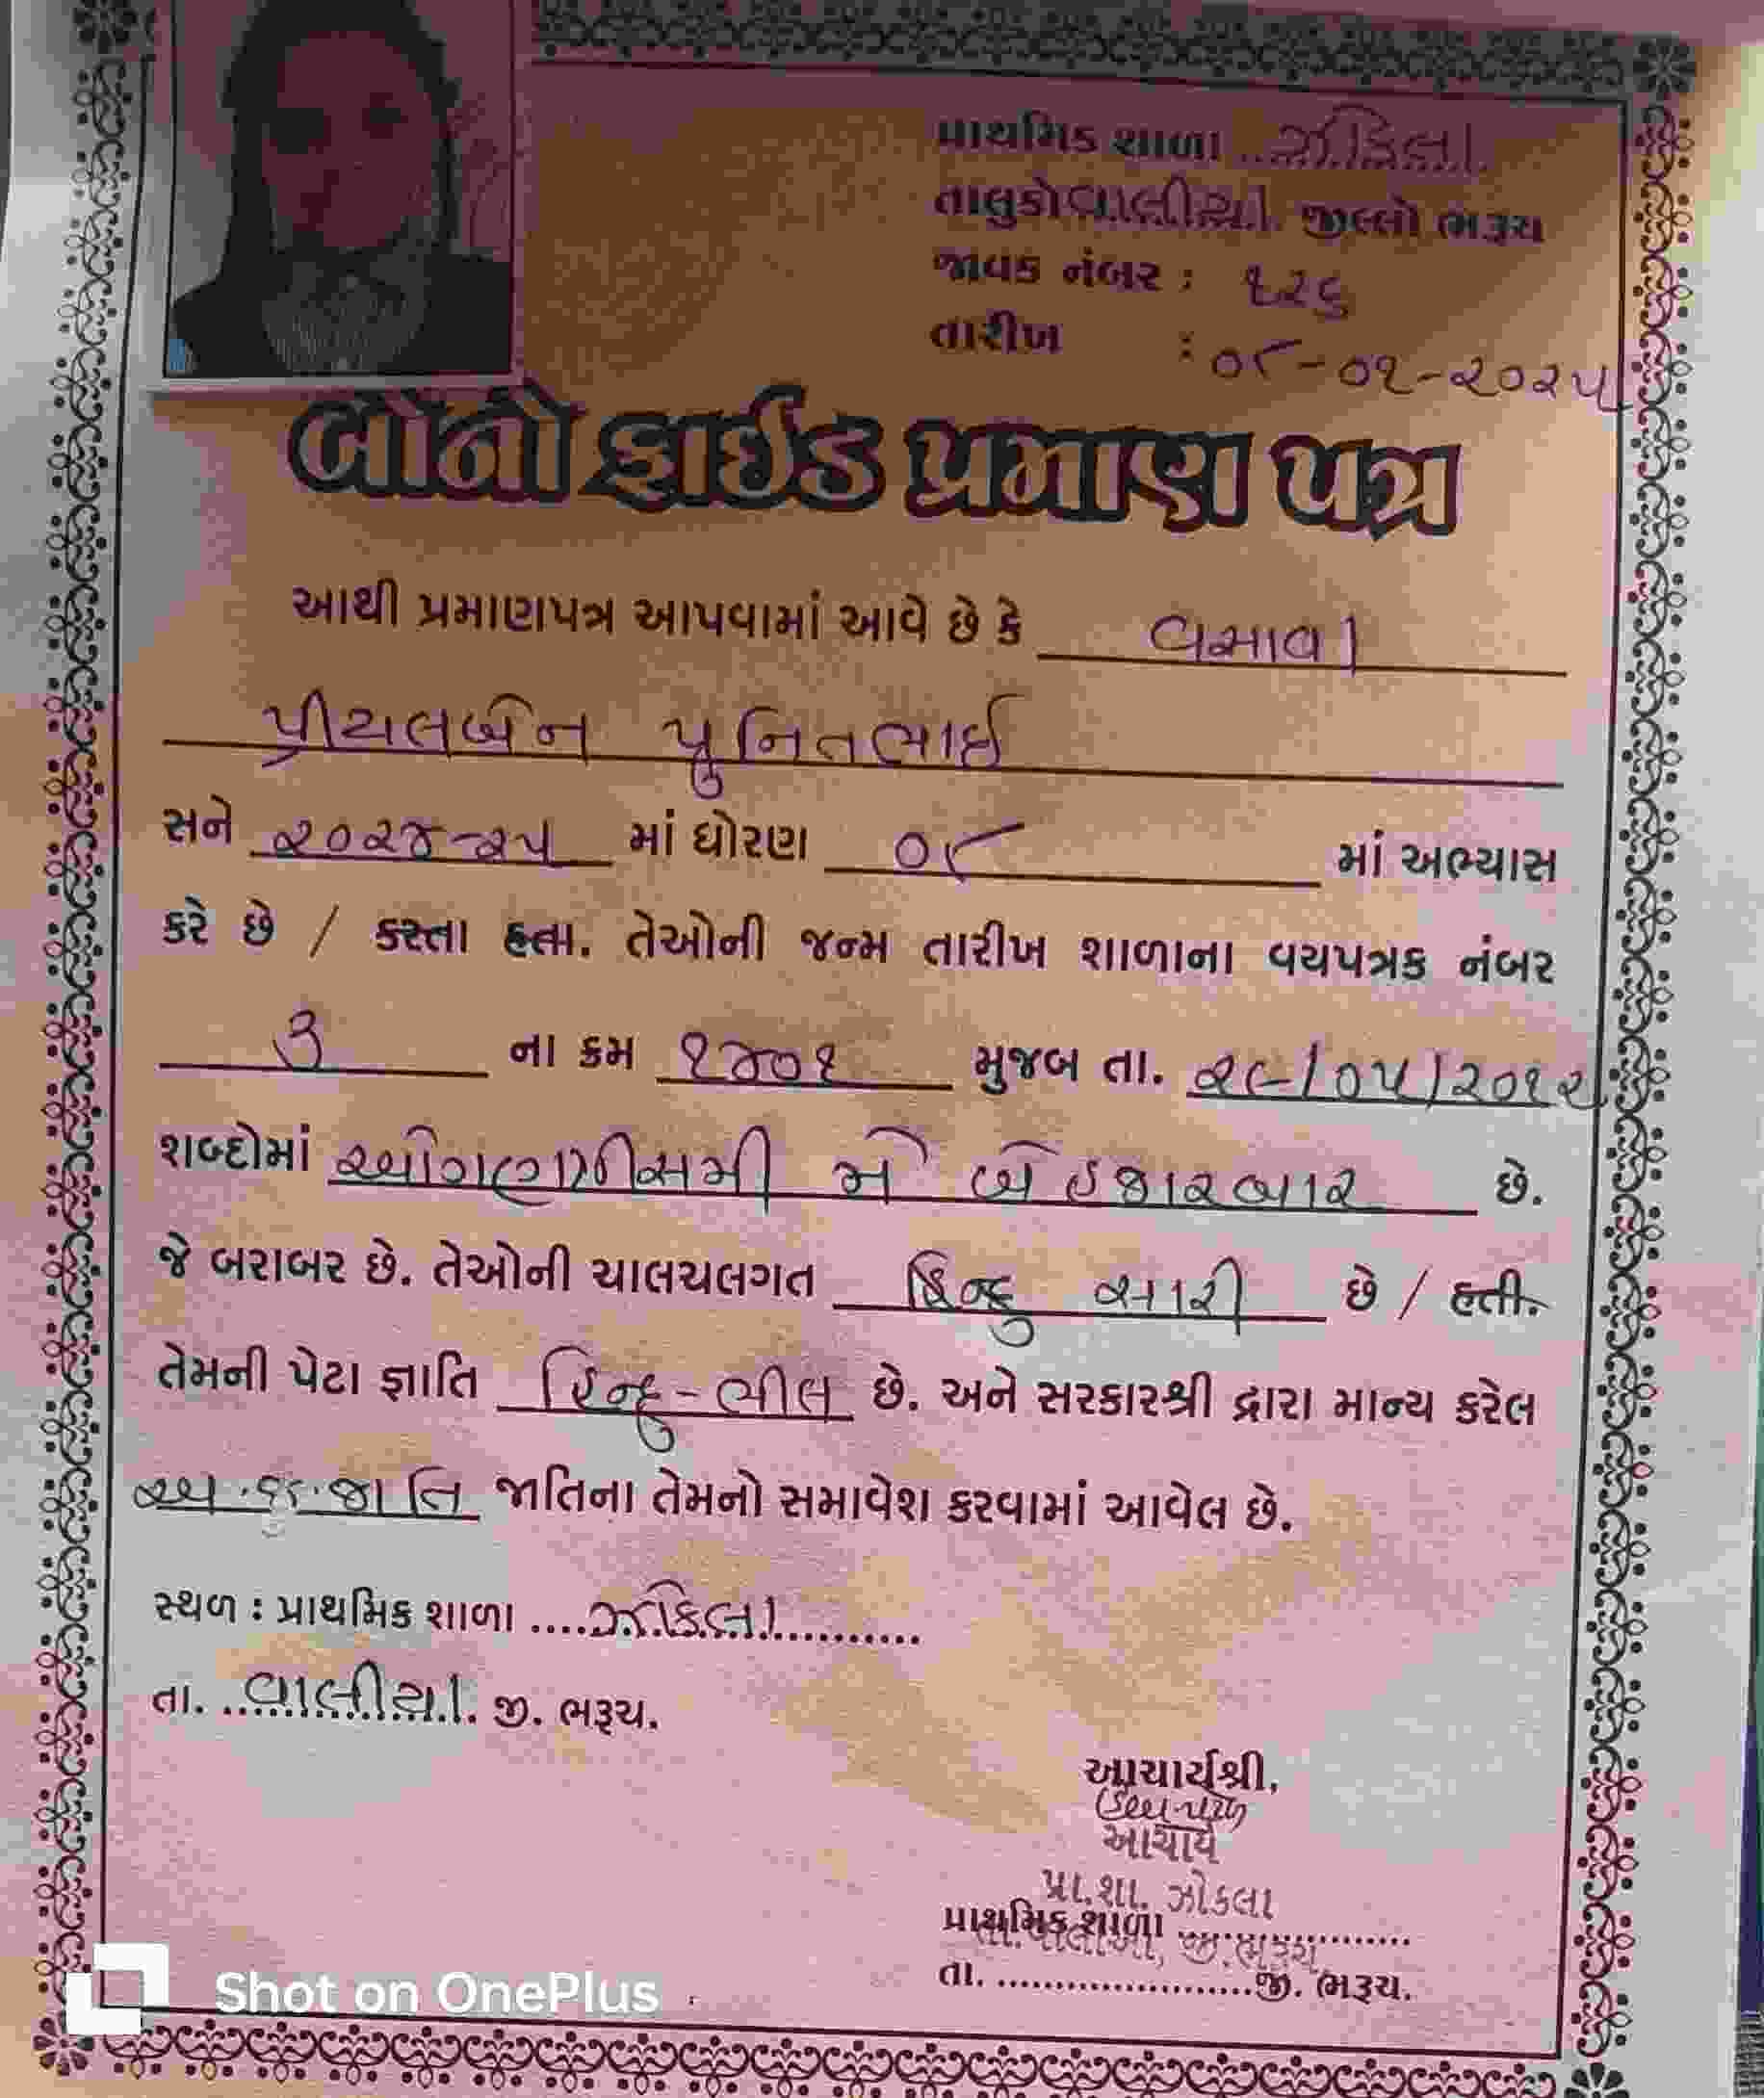 પ્રાથમિક શાળા ઝોકલા
તાલુકો વાલીયા જીલ્લો ભરૂચ
જાવક નંબર : ૧૨૬
તારીખ : ૦૮-૦૧-૨૦૨૫
બોનોફાઈડ પ્રમાણ પત્ર
આથી પ્રમાણપત્ર આપવામાં આવે છે કે વસાવા
પ્રીયલબેન પુનિતભાઈ
સને ૨૦૨૪-૨૫ માં ધોરણ ૦૮ માં અભ્યાસ
કરે છે / કરતા હતા. તેઓની જન્મ તારીખ શાળાના વયપત્રક નંબર
૩ ના ક્રમ ૧૪૦૧ મુજબ તા. ૨૯/૦૫/૨૦૧૨
શબ્દોમાં ઓગણત્રીસમી મે બે હજાર બાર છે.
જે બરાબર છે. તેઓની ચાલચલગત હિન્દુ સારી છે / હતી.
તેમની પેટા જ્ઞાતિ હિન્દુ-ભીલ છે. અને સરકારશ્રી દ્વારા માન્ય કરેલ
જાતિના તેમનો સમાવેશ કરવામાં આવેલ છે.
સ્થળ : પ્રાથમિક શાળા ઝોકલા
તા. વાલીયા જી. ભરૂચ.
આચાર્યશ્રી,
આચાર્ય
પ્રા.શા. ઝોકલા
પ્રાથમિક શાળા
જી.ભરૂચ
તા. જી. ભરૂચ.
Shot on OnePlus